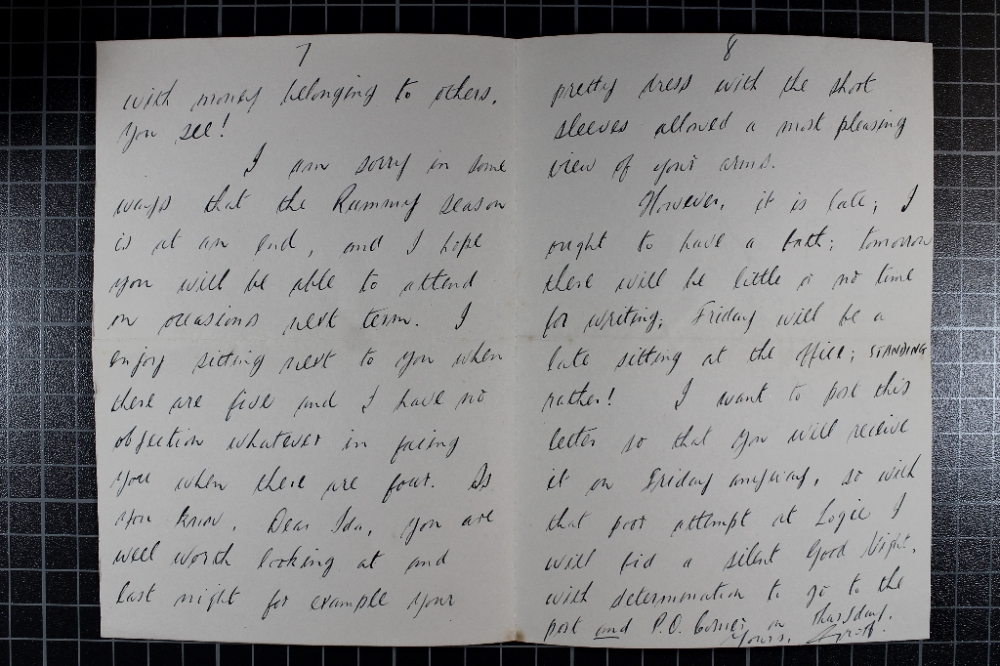 7
with money belonging to others,
you see!
I am sorry in some
ways that the Rummy season
is at an end, and I hope
you will be able to attend
on occasions next term. I
enjoy sitting next to you when
there are five and I have no
objection whatever in facing
you when there are four. As
you know, Dear Ida, you are
well worth looking at and
last night for example your
8
pretty dress with the short
sleeves allowed a most pleasing
view of your arms.
However, it is late; I
ought to have a bath; tomorrow
there will be little or no time
for writing; Friday will be a
late sitting at the office; STANDING
rather! I want to post this
letter so that you will receive
it on Friday anyway, so with
that poor attempt at Logic I
will bid a silent Good Night,
with determination to go to the
post and P.O. Corner on Thursday.
Yours,